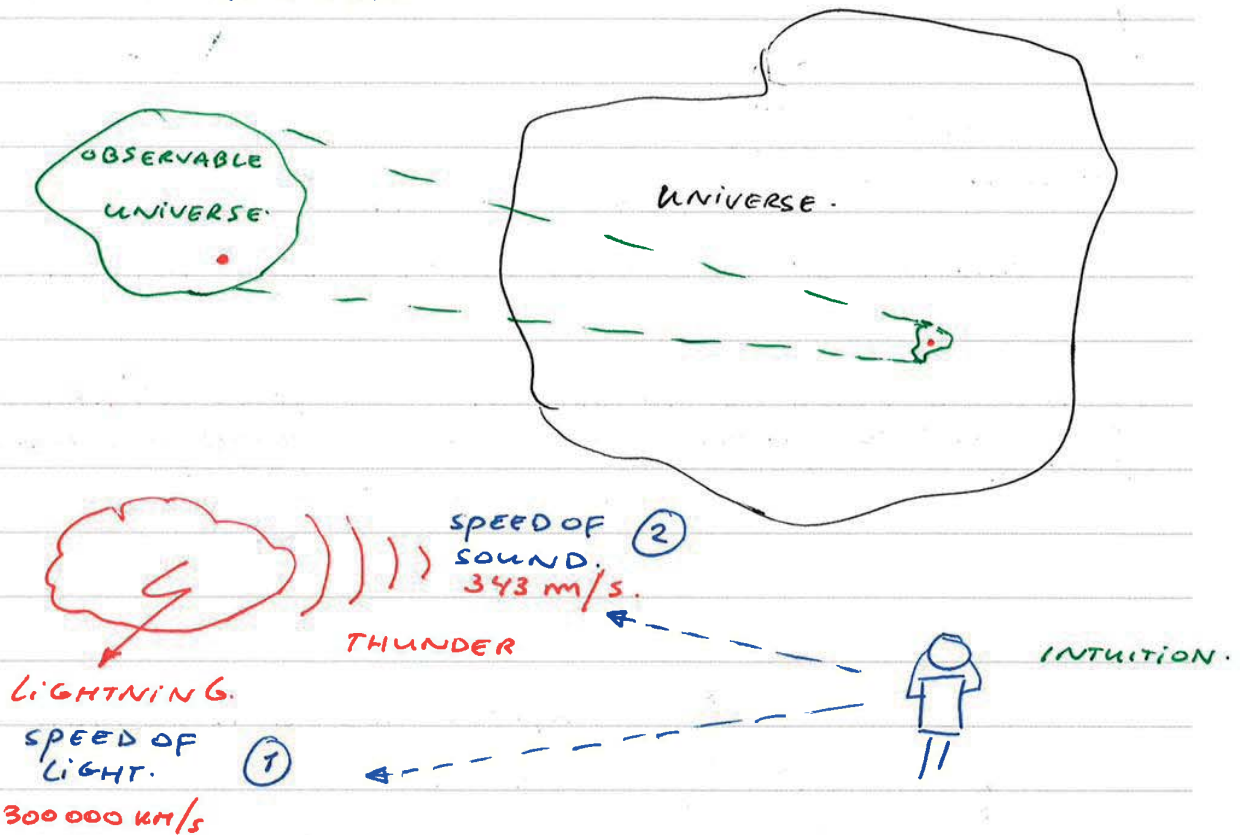 OBSERVABLE
UNIVERSE.
UNIVERSE.
SPEED OF
SOUND.
2
343 m/s.
THUNDER
INTUITION.
LIGHTNING.
SPEED OF
LIGHT.
1
300 000 KM/s